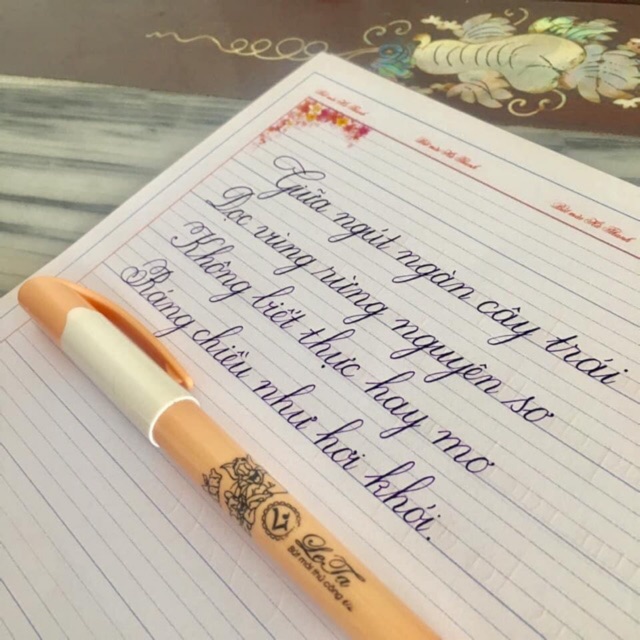 Giữa ngút ngàn cây trái
Dọc vùng rừng nguyên sơ
Không biết thực hay mơ
Ráng chiều như hơi khói.
V
Bút mài thủ công